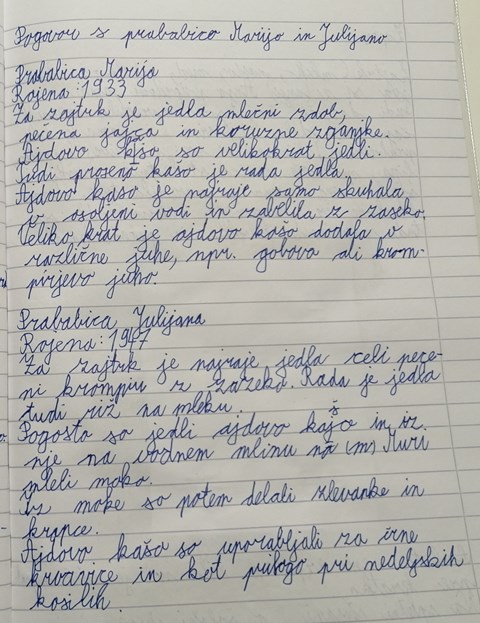 Pogovor s prababico Marijo in Julijano
Prababica Marija
Rojena: 1933
Za zajtrk je jedla mlečni zdob,
pečena jajca in koruzne žganjke.
Ajdovo kašo so velikokrat jedli.
Tudi proseno kašo je rada jedla.
Ajdovo kašo je najraje samo skuhala
v osoljeni vodi in zabelila z zaseko.
Veliko krat je ajdovo kašo dodala v
različne juhe, npr. gobova ali krom-
pirjevo juho.
Prababica Julijana
Rojena: 1947
Za zajtrk je najraje jedla celi peče-
ni krompir z zazeko. Rada je jedla
tudi riž na mleku.
Pogosto so jedli ajdovo kašo in iz
nje na vodnem mlinu na (m) Muri
mleli moko.
Iz moke so potem delali zlevanke in
krapce.
Ajdovo kašo so uporabljali za črne
krvavice in kot prilogo pri nedeljskih
kosilih.